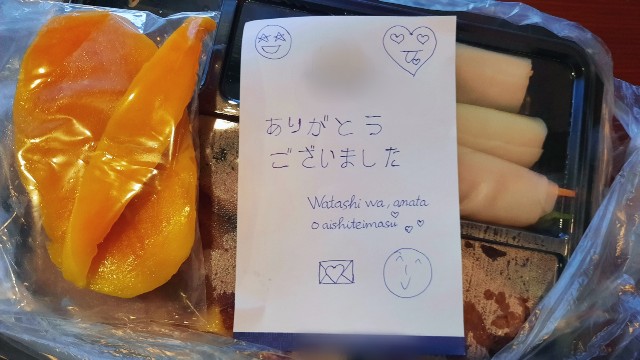 ありがとう
ございました
Watashi wa, anata
o aishiteimasu